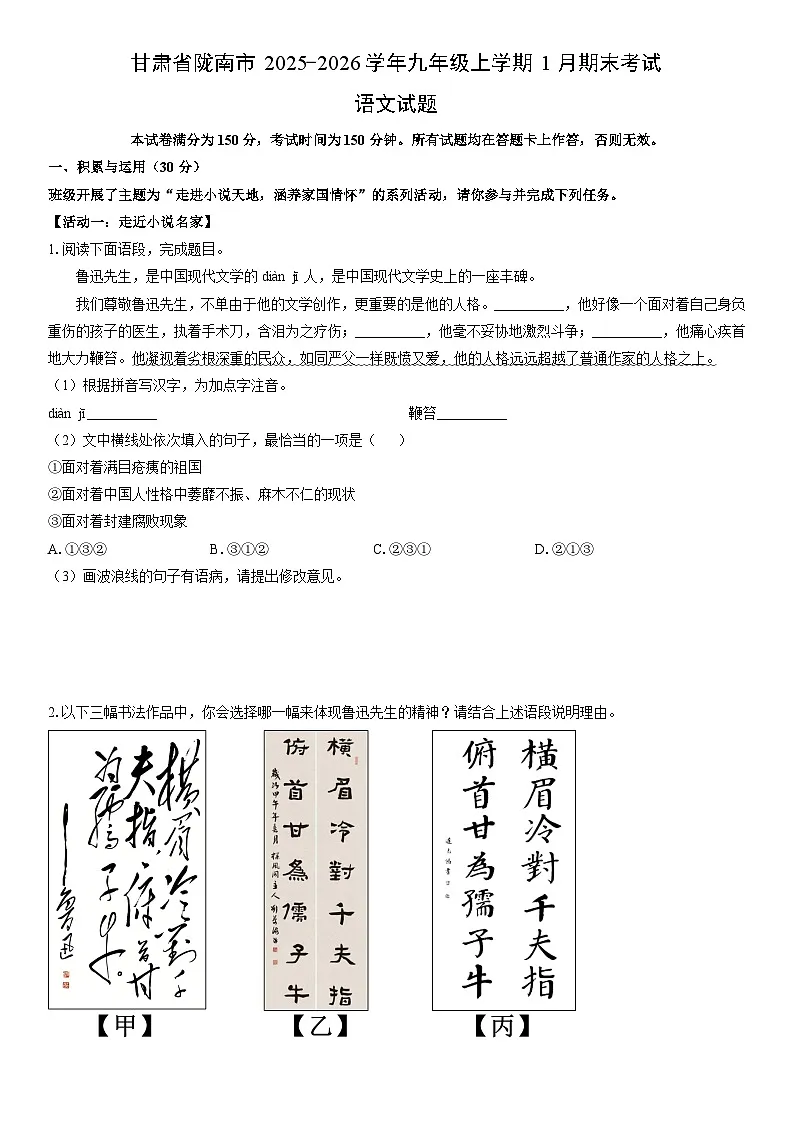 甘肃省陇南市 2025-2026 学年九年级上学期 1 月期末考试
语文试题
本试卷满分为 150 分，考试时间为 150 分钟。所有试题均在答题卡上作答，否则无效。
一、积累与运用（30 分）
班级开展了主题为“走进小说天地，涵养家国情怀”的系列活动，请你参与并完成下列任务。
【活动一：走近小说名家】
1. 阅读下面语段，完成题目。
鲁迅先生，是中国现代文学的 diàn jī 人，是中国现代文学史上的一座丰碑。
我们尊敬鲁迅先生，不单由于他的文学创作，更重要的是他的人格。__________，他好像一个面对着自己身负
重伤的孩子的医生，执着手术刀，含泪为之疗伤；__________，他毫不妥协地激烈斗争；__________，他痛心疾首
地大力鞭笞。他凝视着劣根深重的民众，如同严父一样既愤又爱，他的人格远远超越了普通作家的人格之上。
（1）根据拼音写汉字，为加点字注音。
diàn jī__________ 鞭笞__________
（2）文中横线处依次填入的句子，最恰当的一项是（ ）
①面对着满目疮痍的祖国
②面对着中国人性格中萎靡不振、麻木不仁的现状
③面对着封建腐败现象
A. ①③② B. ③①② C. ②③① D. ②①③
（3）画波浪线的句子有语病，请提出修改意见。
2. 以下三幅书法作品中，你会选择哪一幅来体现鲁迅先生的精神？请结合上述语段说明理由。
橫眉冷對千
夫指，俯首甘
為孺子牛。
鲁迅
橫眉冷對千夫指
俯首甘為孺子牛
橫眉冷對千夫指
俯首甘為孺子牛
【甲】 【乙】 【丙】